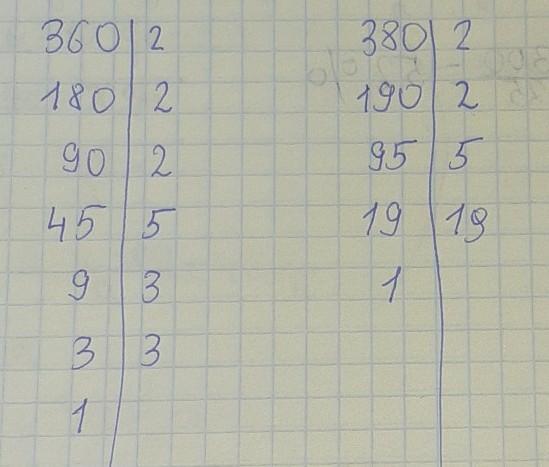 360 | 2 380 | 2
180 | 2 190 | 2
90 | 2 95 | 5
45 | 5 19 | 19
9 | 3 1
3 | 3
1